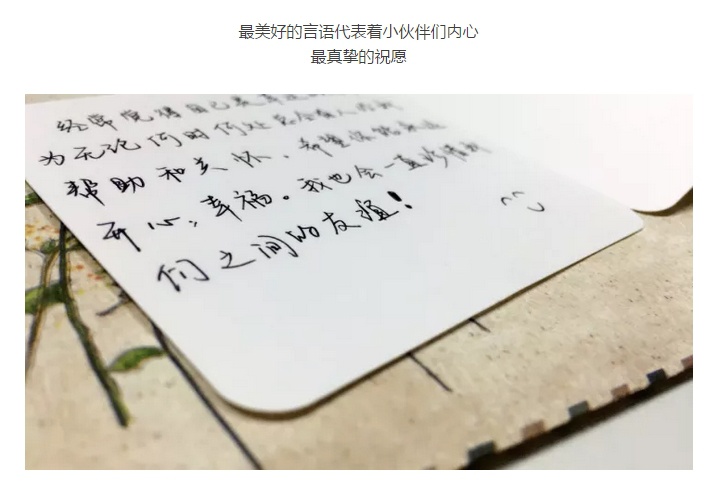 最美好的言语代表着小伙伴们内心
最真挚的祝愿
经常觉得自己是幸运的
为无论何时何处总会有人给我
帮助和关怀，希望你能永远
开心，幸福。我也会一直珍惜我
们之间的友谊！